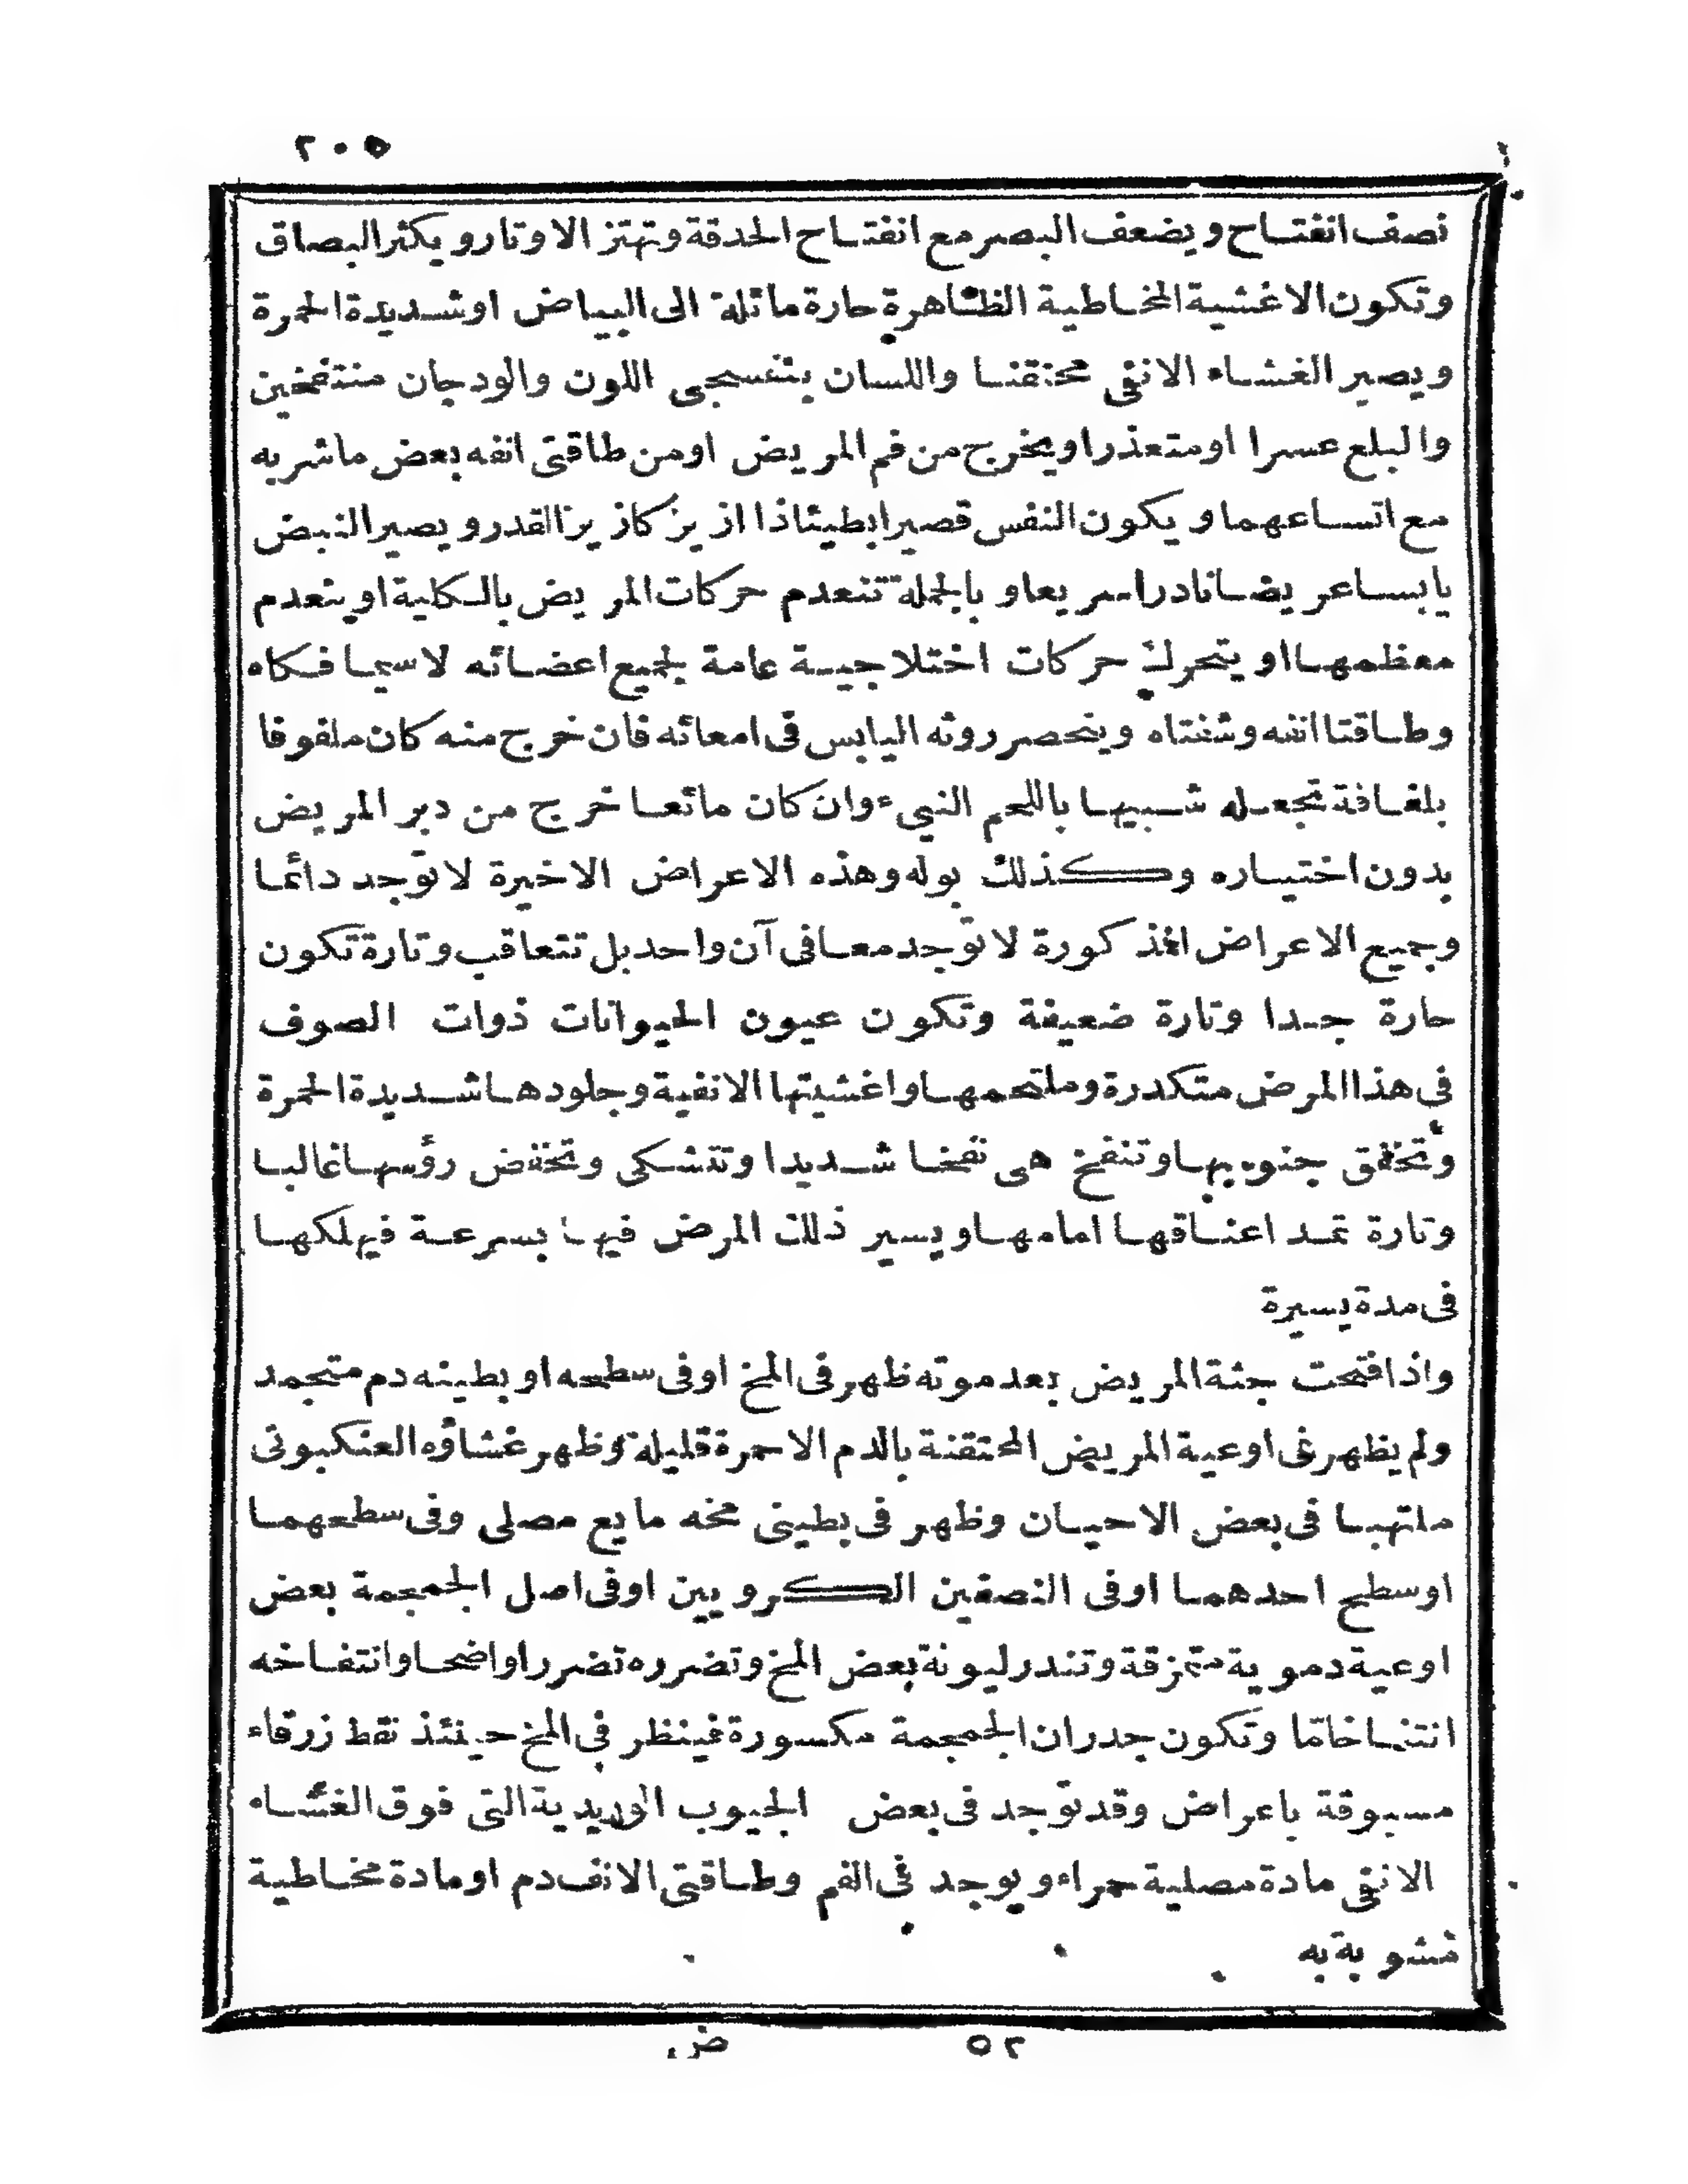 ٢٠٥
نصف انفتاح ويضعف البصر مع انفتاح الحدقة وتهتز الاوتار ويكثر البصاق
وتكون الاغشية المخاطية الظاهرة حارة مائلة الى البياض او شديدة الحمرة
ويصير الغشاء الانفى محتقنا واللسان بنفسجى اللون والودجان منتفخين
والبلع عسرا او متعذرا ويخرج من فم المريض او من طاقتى انفه بعض ماشربه
مع اتساعهما ويكون النفس قصيرا بطيئا ذا ازيز كازيز القدر ويصير النبض
يابسا عريضا نادرا سريعا وبالجملة تنعدم حركات المريض بالكلية او ينعدم
معظمها او يتحرك حركات اختلاجية عامة لجميع اعضائه لاسيما فكاه
وطاقتا انفه وشفتاه وينحصر روثه اليابس فى امعائه فان خرج منه كان ملفوفا
بلفافة تجعله شبيها باللحم النيىء وان كان مائعا خرج من دبر المريض
بدون اختياره وكذلك بوله وهذه الاعراض الاخيرة لاتوجد دائما
وجميع الاعراض المذكورة لاتوجد معا فى آن واحد بل تتعاقب وتارة تكون
حارة جدا وتارة ضعيفة وتكون عيون الحيوانات ذوات الصوف
في هذا المرض متكدرة وملتحمها واغشيتها الانفية وجلودها شديدة الحمرة
وتخفق جنوبها وتنفخ هى نفخا شديدا وتتشكى وتخفض رؤسها غالبا
وتارة تمد اعناقها امامها ويسير ذلك المرض فيها بسرعة فيهلكها
فى مدة يسيرة
واذا فتحت جثة المريض بعد موته ظهر فى المخ او فى سطحه او بطينه دم متجمد
ولم يظهر فى اوعية المريض المحتقنة بالدم الاحمرة قليلة وظهر غشاؤه العنكبوتى
ملتهبا فى بعض الاحيان وظهر فى بطينى مخه مايع مصلى وفى سطحهما
او سطح احدهما او فى النصفين الكرويين او فى اصل الجمجمة بعض
اوعية دموية متمزقة وتندر ليونة بعض المخ وتضرره تضررا واضحا وانتفاخه
انتفاخا تاما وتكون جدران الجمجمة مكسورة فينظر في المخ حينئذ نقط زرقاء
مسبوقة باعراض وقد توجد فى بعض الجيوب الوريدية التى فوق الغشاء
الانفى مادة مصلية حمراء ويوجد فى الفم وطاقتى الانف دم او مادة مخاطية
مشوبة به
٥٢ ض